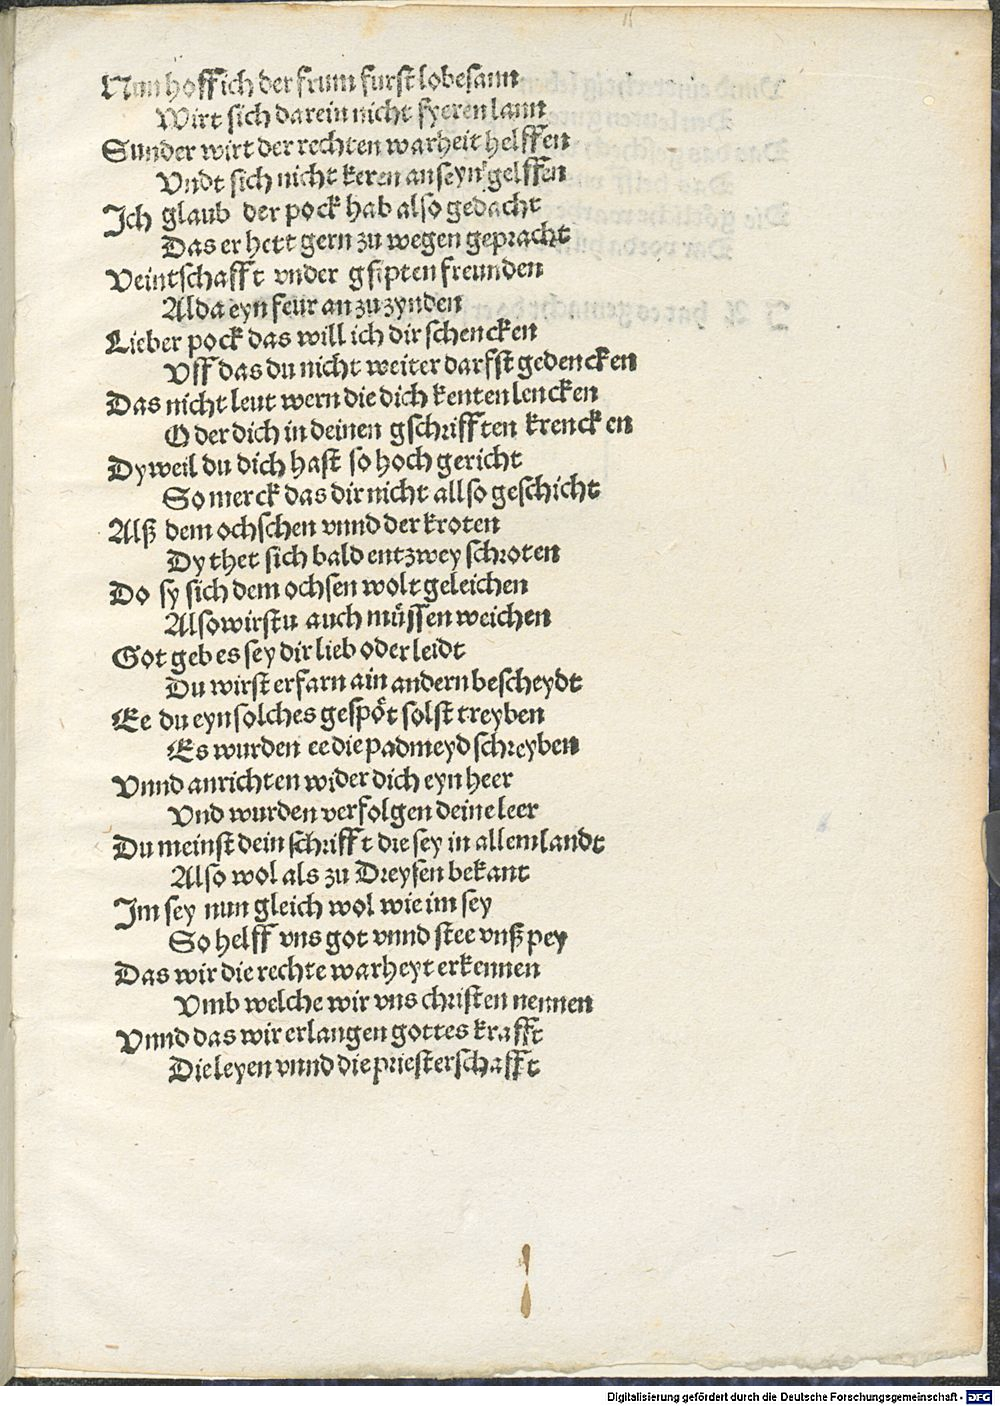 Nun hoff ich der frum furst lobesann
Wirt sich darein nicht fyeren lann
Sunder wirt der rechten warheit helffen
Vndt sich nicht keren an seyn gelffen
Ich glaub der pock hab also gedacht
Das er hett gern zu wegen gepracht
Veintschafft vnder gsipten freunden
Alda eyn feur an zu zynden
Lieber pock das will ich dir schencken
Vff das du nicht weiter darfst gedencken
Das nicht leut wern die dich kenten lencken
Oder dich in deinen gschrifften krencken
Dyweil du dich hast so hoch gericht
So merck das dir nicht allso geschicht
Alß dem ochschen vnnd der kroten
Dy thet sich bald entzwey schroten
Do sy sich dem ochsen wolt geleichen
Also wirstu auch müssen weichen
Got geb es sey dir lieb oder leidt
Du wirst erfarn ain andern bescheydt
Ee du eyn solches gespöt solst treyben
Es wurden ee die padmeyd schreyben
Vnnd anrichten wider dich eyn heer
Vnd wurden verfolgen deine leer
Du meinst dein schrifft die sey in allem landt
Also wol als zu Dreysen bekant
Im sey nun gleich wol wie im sey
So helff vns got vnnd stee vnß pey
Das wir die rechte warheyt erkennen
Vmb welche wir vns christen nennen
Vnnd das wir erlangen gottes krafft
Die leyen vnnd die priesterschafft
Digitalisierung gefördert durch die Deutsche Forschungsgemeinschaft - DFG